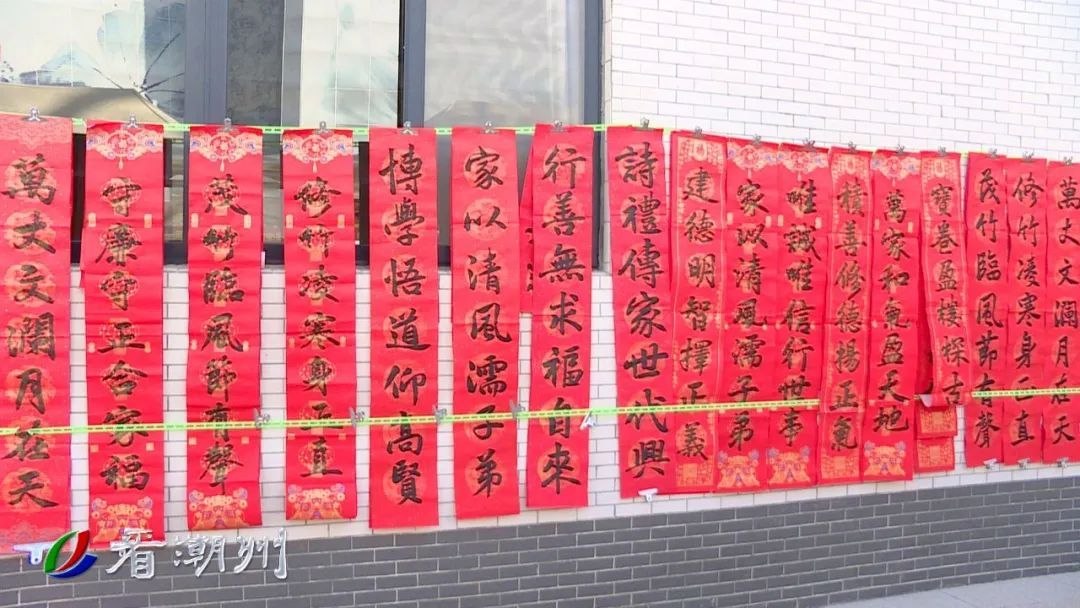 萬丈文瀾月在天
守廉守正合家福
茂竹臨風節有聲
修竹凌寒身正直
博學悟道仰高賢
家以清風濡子弟
行善無求福自來
詩禮傳家世代興
建德明智擇正義
家以清風濡子弟
唯誠唯信行世事
積善修德揚正氣
萬家和氣盈天地
寶卷盈樓探古
茂竹臨風節有聲
修竹凌寒身正直
萬丈文瀾月在天
看潮州